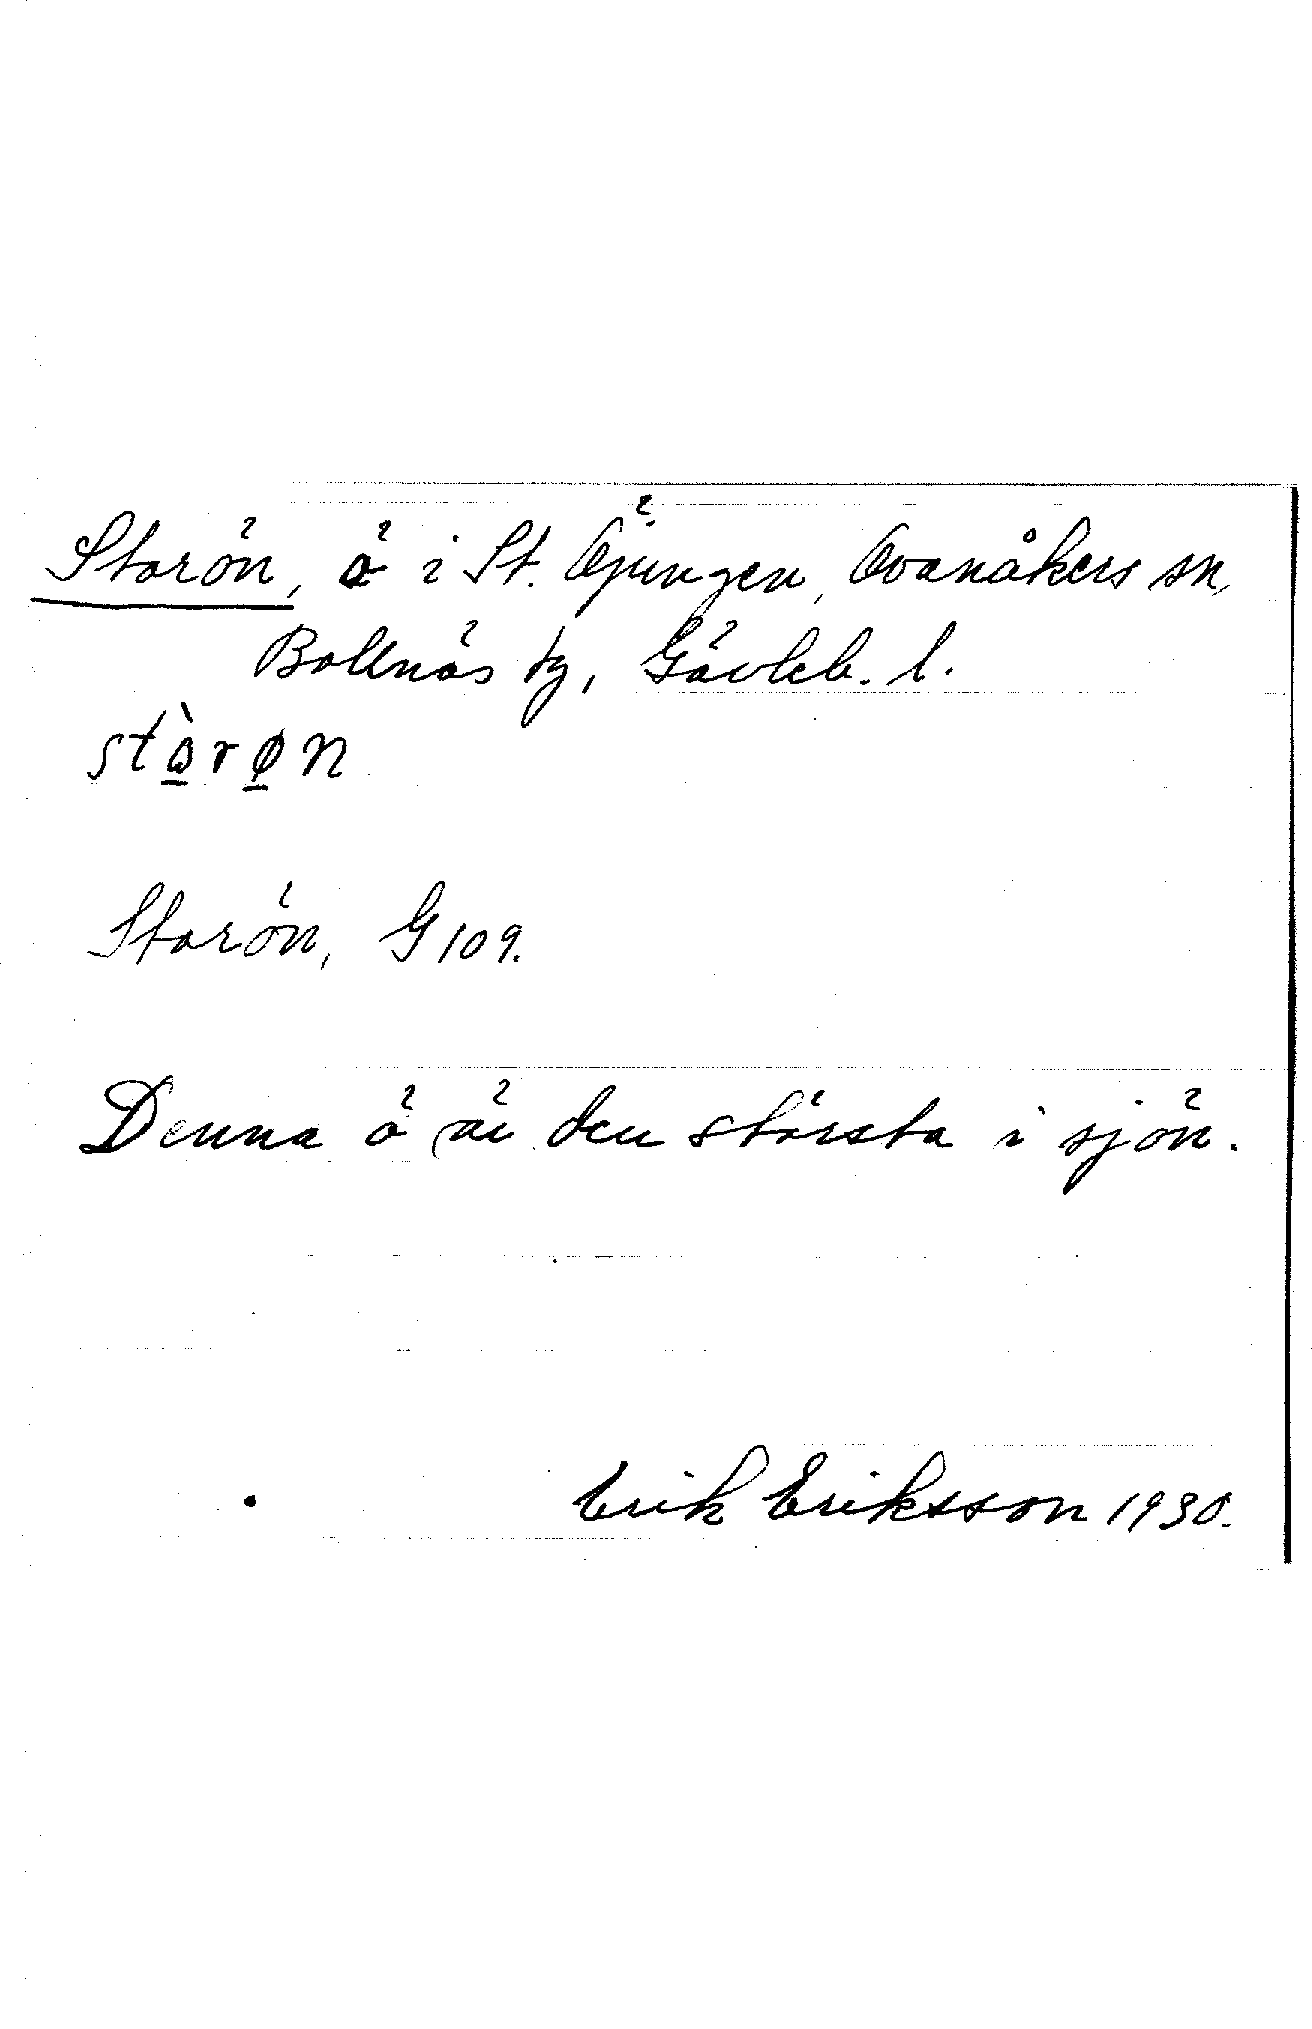 Storön, ö i St. Öjungen, Ovanåkers sn,
Bollnäs tg, Gävleb. l.
Storön, G 109.
Denna ö är den största i sjön.
Erik Eriksson 1930.